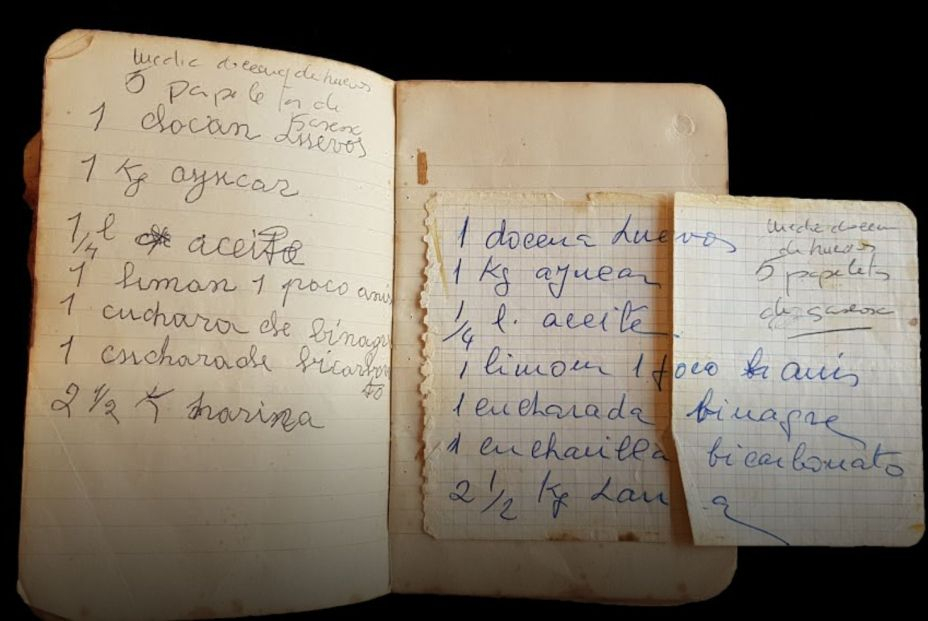 media docena de huevos
5 papeletas de
gaseosa
1 docan Luevos
1 Kg ayucar
1/4 l aceite
1 liman 1 poco anis
1 cuchara de binagr
1 cucharade bicarbon
to
2 1/2 K harina
media docena
de huevos
5 papeletas
de gaseosa
1 docena Luevos
1 Kg ayucar
1/4 l. aceite
1 limon 1 poco anis
1 cucharada binagre
1 cucharilla bicarbonato
2 1/2 Kg